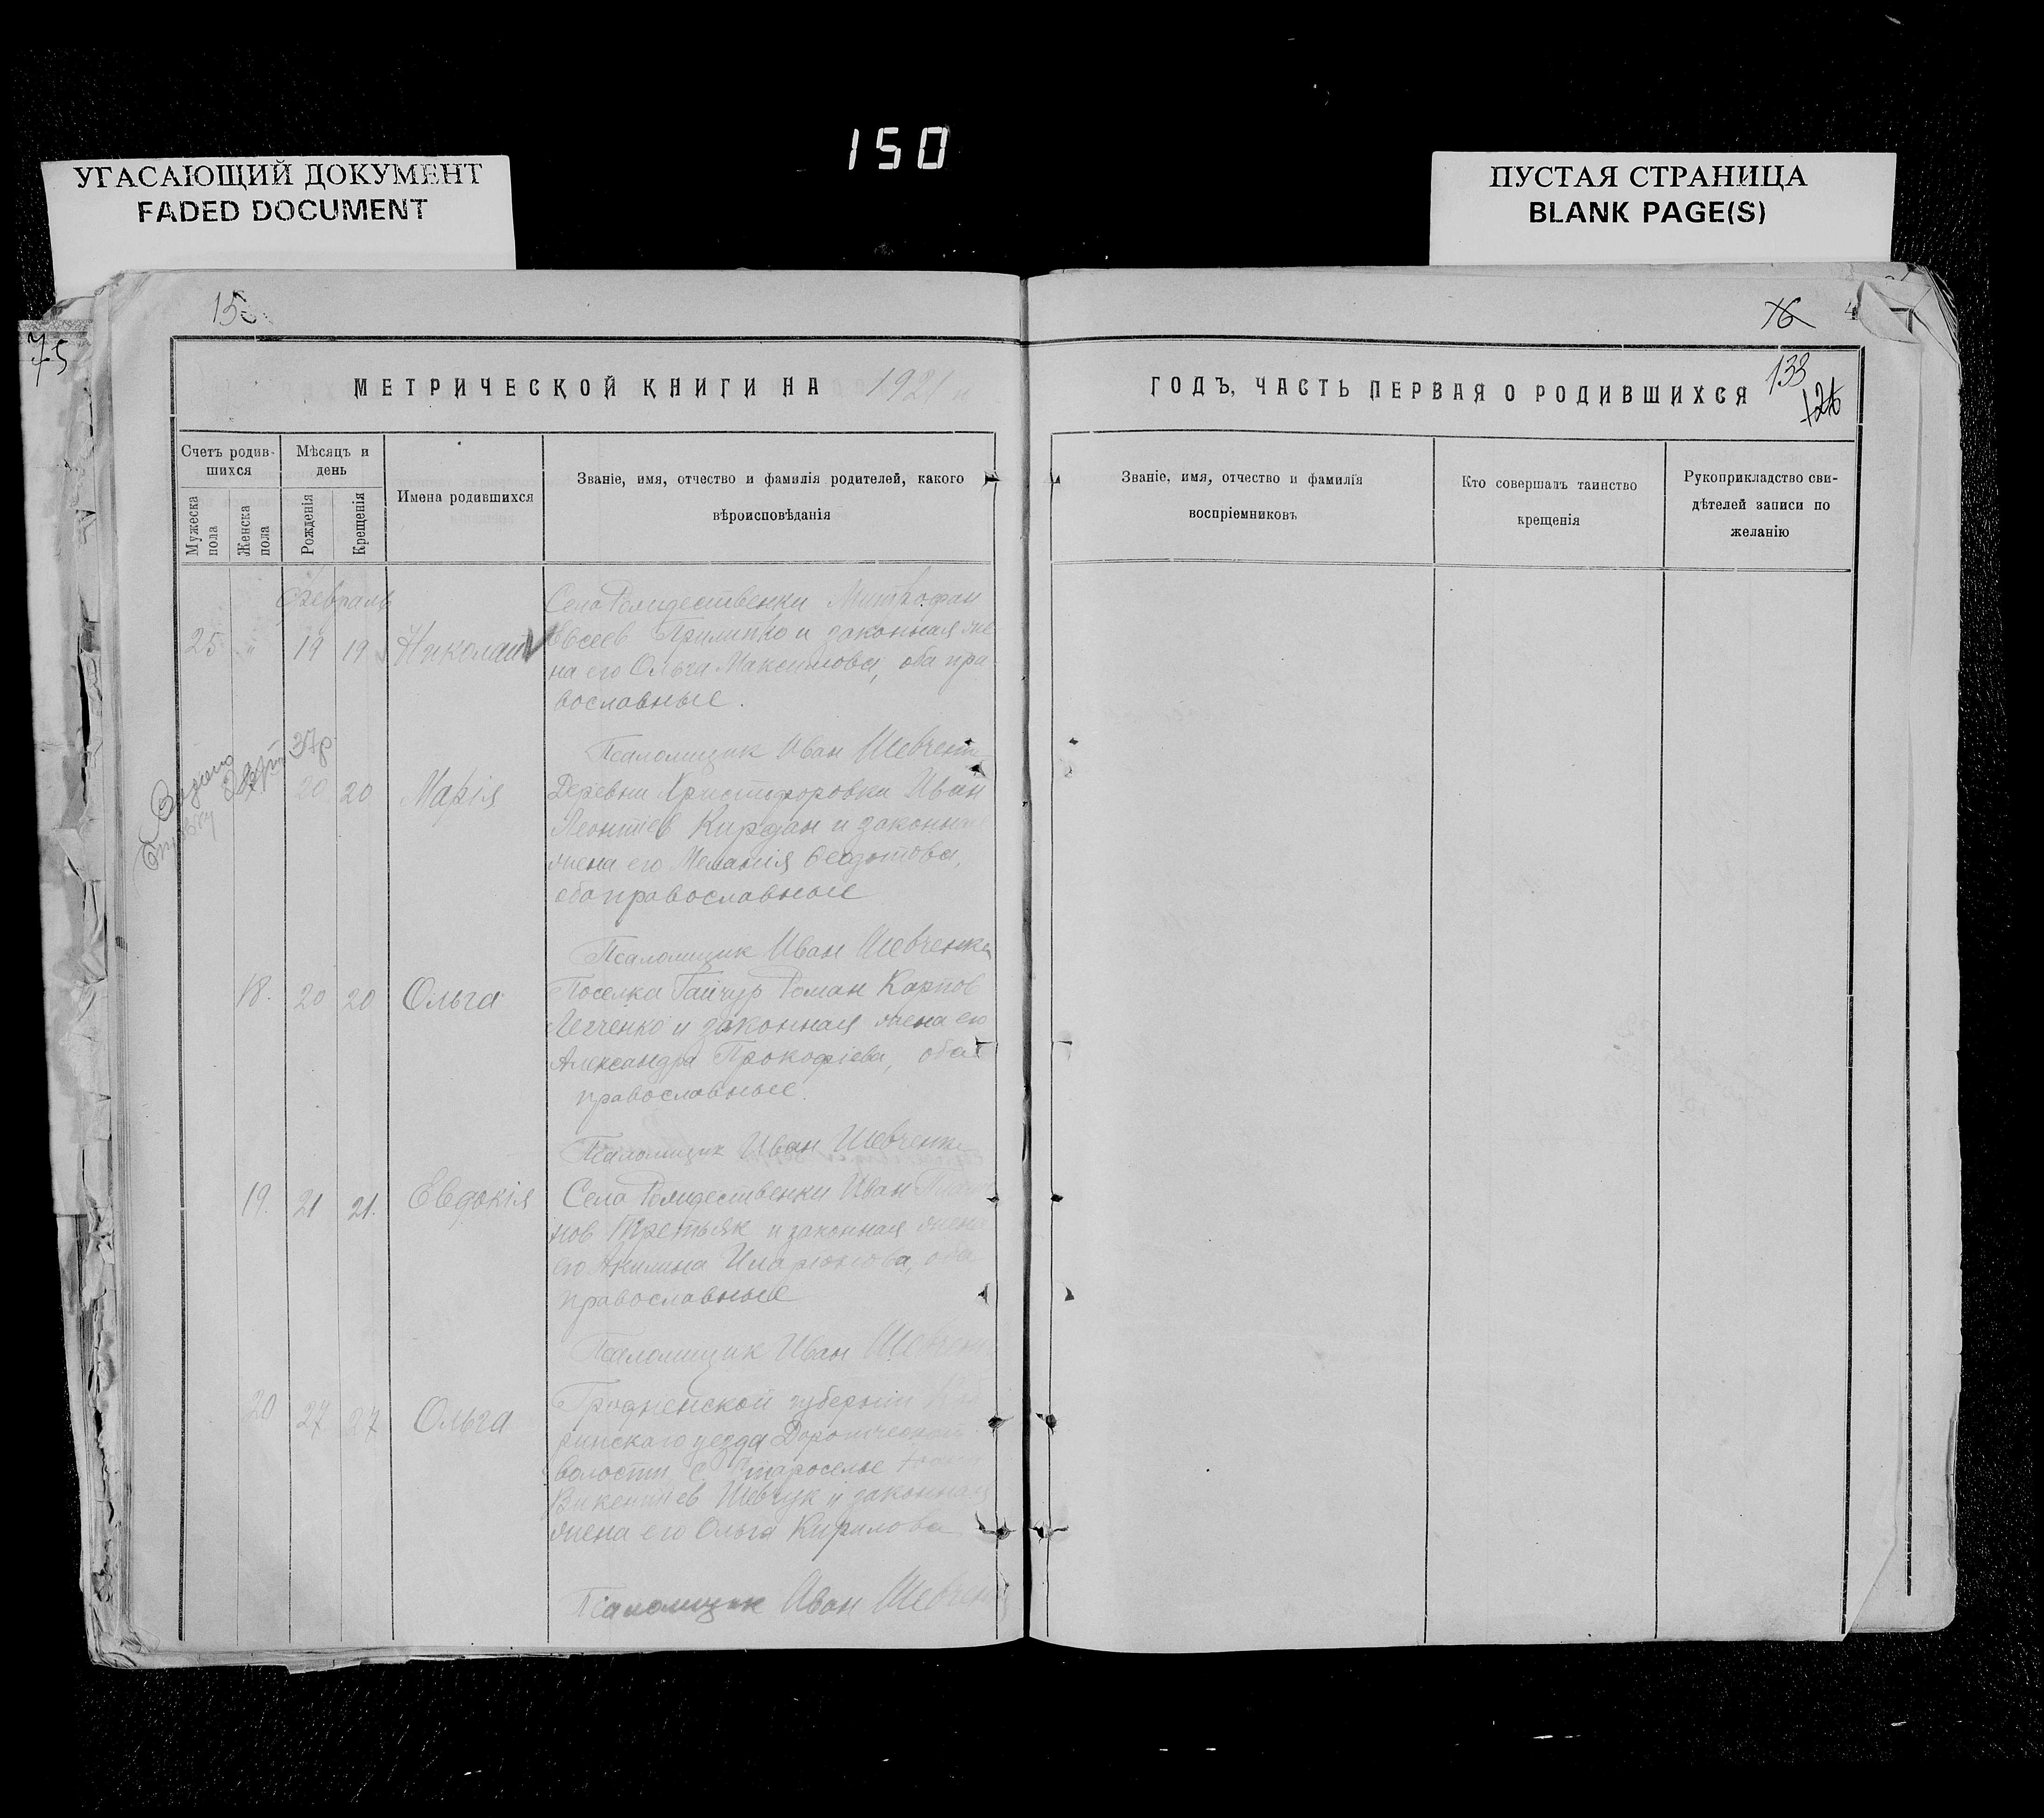 150
УГАСАЮЩИЙ ДОКУМЕНТ
FADED DOCUMENT
ПУСТАЯ СТРАНИЦА
BLANK PAGE(S)
75
76
133
МЕТРИЧЕСКОЙ КНИГИ НА 1921
ГОДЪ, ЧАСТЬ ПЕРВАЯ О РОДИВШИХСЯ
Счетъ родив-
шихся
Мужеска
пола
Женска
пола
Мѣсяцъ и
день
Рожденія
Крещенія
Имена родившихся
Званіе, имя, отчество и фамилія родителей, какого
вѣроисповѣданія
Званіе, имя, отчество и фамилія
воспріемниковъ
Кто совершалъ таинство
крещенія
Рукоприкладство сви-
дѣтелей записи по
желанію
Февраль
25 " 19 19 Николай
Села Рождественки Митрофан
Евсеев Прилипко и законная же
на его Ольга Максимова, оба пра
вославные.
Псаломщик Иван Шевченк
20 20 Марія
Деревни Христофоровки Иван
Леонтіев Кирдан и законная
жена его Меланія Феодотова,
оба православные
Псаломщик Иван Шевченко
18. 20 20 Ольга
Поселка Гайчур Роман Карпов
и законная жена его
Александра Прокофіева, оба
православные.
Псаломщик Иван Шевченко
19. 21 21. Евдокія
Села Рождественки Иван
нов Третьяк и законная жена
его Акилина Иларіонова, оба
православные
Псаломщик Иван Шевченк
20 27 27 Ольга
Гродненской губерніи
ринскаго уезда
волости с. Староселье
Викентиев Шевчук и законная
жена его Ольга Кирилова
Псаломщик Иван Шевченк